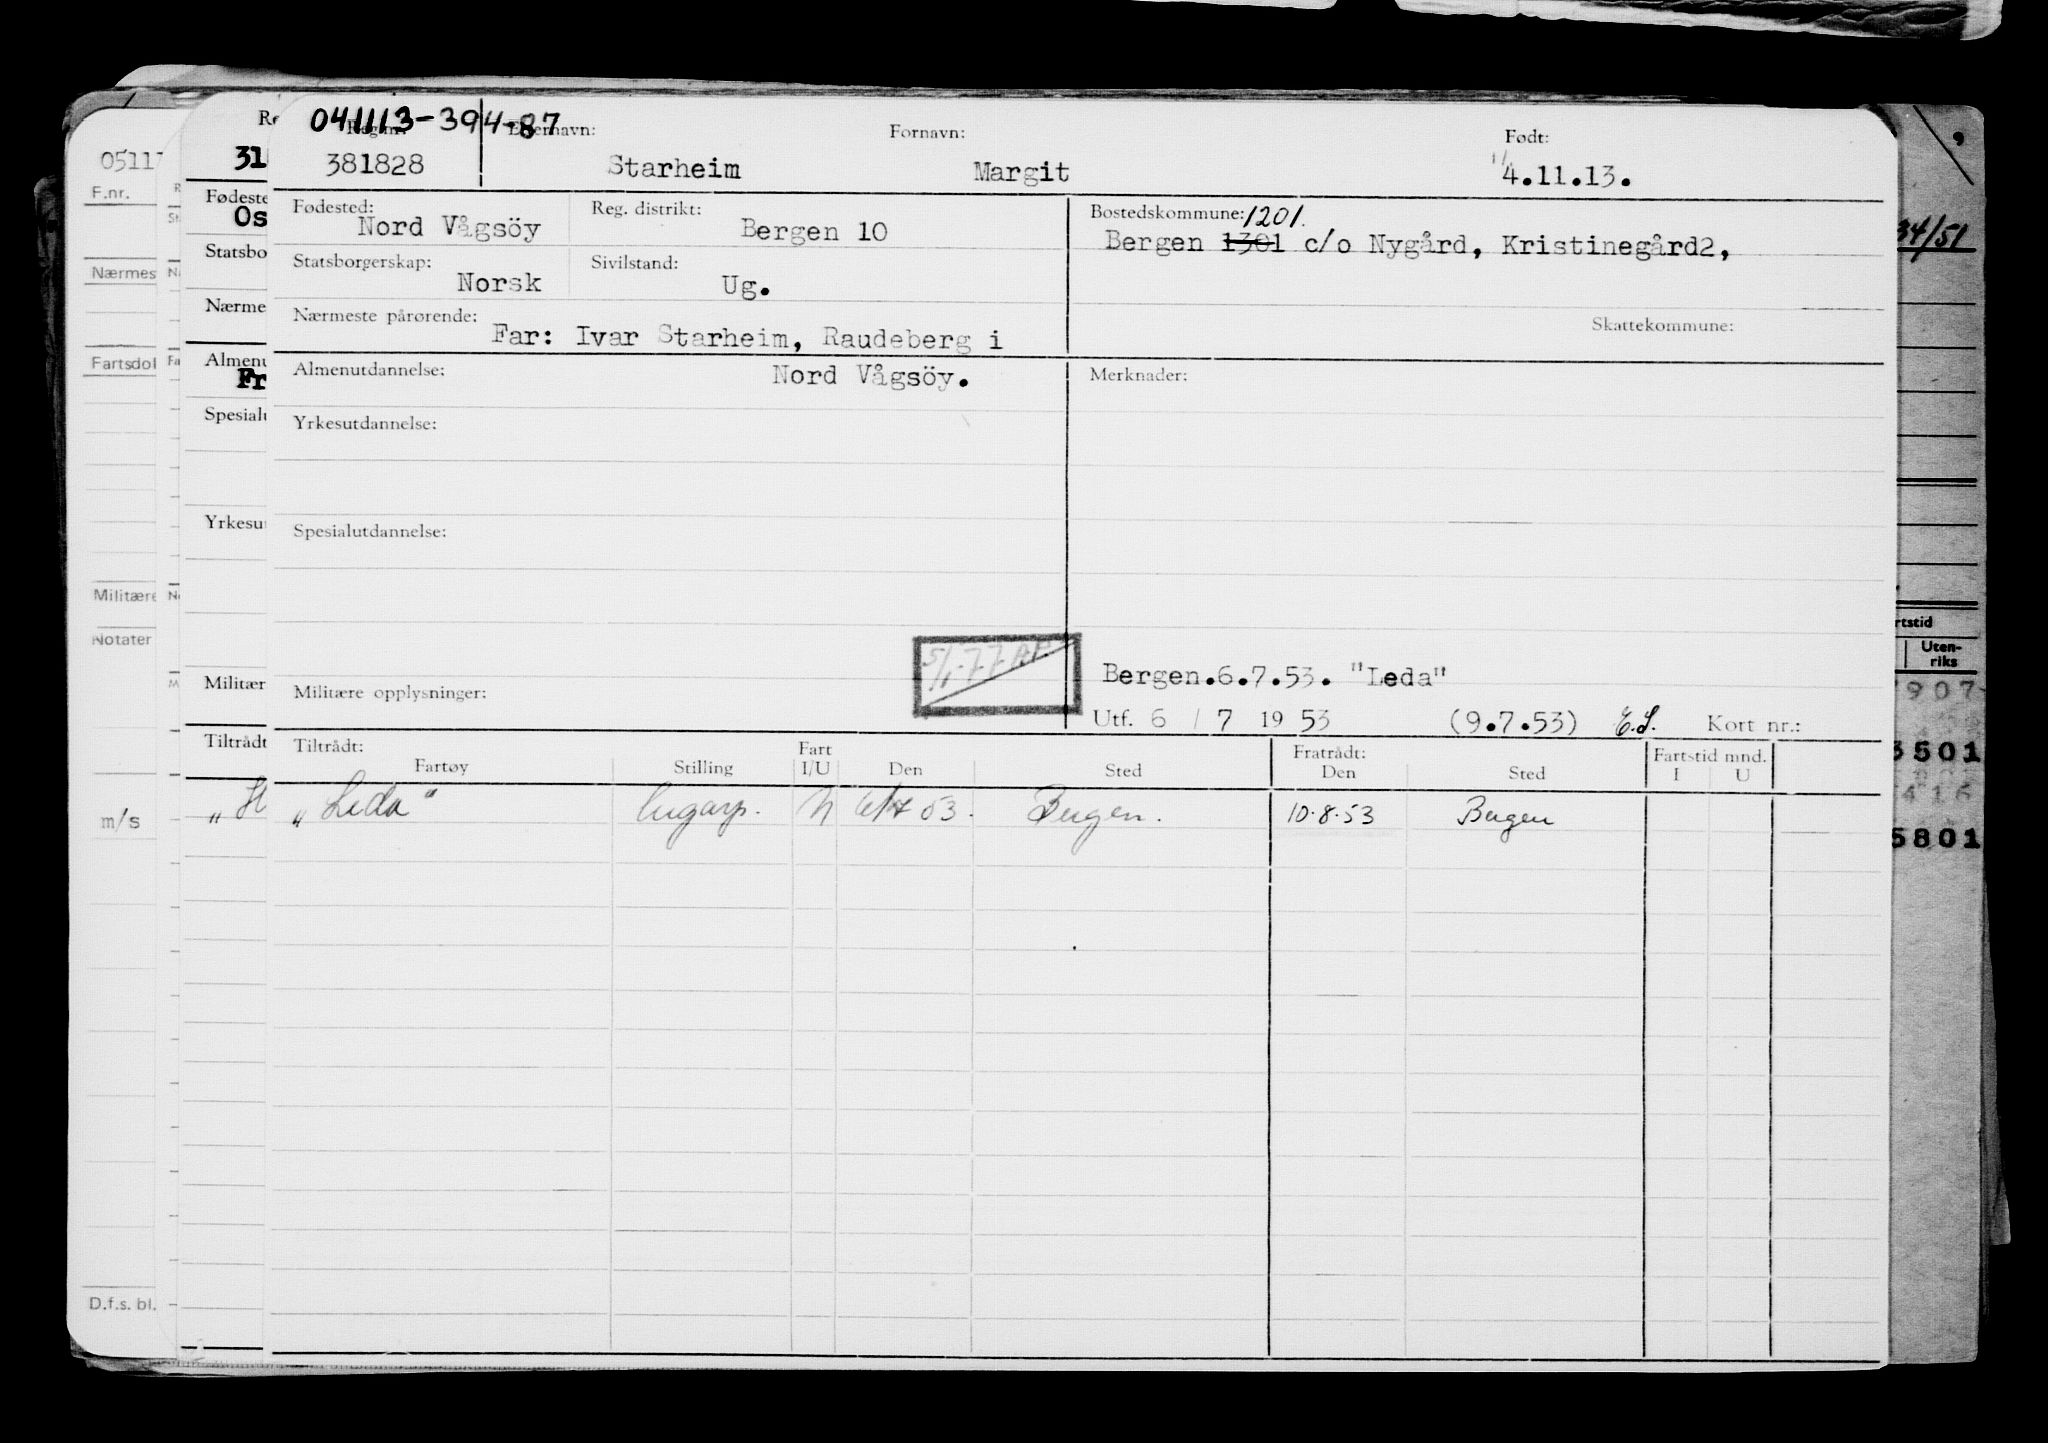 041113-394-87
Reg.nr. Etternavn: Fornavn: Født:
381828 Starheim Margit 4.11.13.
Fødested: Nord Vågsöy Reg. distrikt: Bergen 10 Bostedskommune: 1201.
Bergen 1301 c/o Nygård, Kristinegård2,
Statsborgerskap: Norsk Sivilstand: Ug.
Nærmeste pårørende: Far: Ivar Starheim, Raudeberg i Skattekommune:
Almenutdannelse: Nord Vågsöy. Merknader:
Yrkesutdannelse:
Spesialutdannelse:
Bergen.6.7.53. "Leda"
Militære opplysninger:
Utf. 6 / 7 19 53 (9.7.53) Kort nr.:
Tiltrådt: Fart Fratrådt: Fartstid mnd.
Fartøy Stilling I/U Den Sted Den Sted I U
„Leda" 53. Bergen. 10.8.53 Bergen
05111
F.nr.
Nærmes
Fartsdol
Militære
Notater
m/s
D.f.s. bl.
Re
31
Fødeste
Os
Statsbo
Nærme
Almenu
Fr
Spesialu
Yrkesu
Militær
Tiltrådt
„H
34/51
rtstid
Uten-
riks
907
3501
416
5801